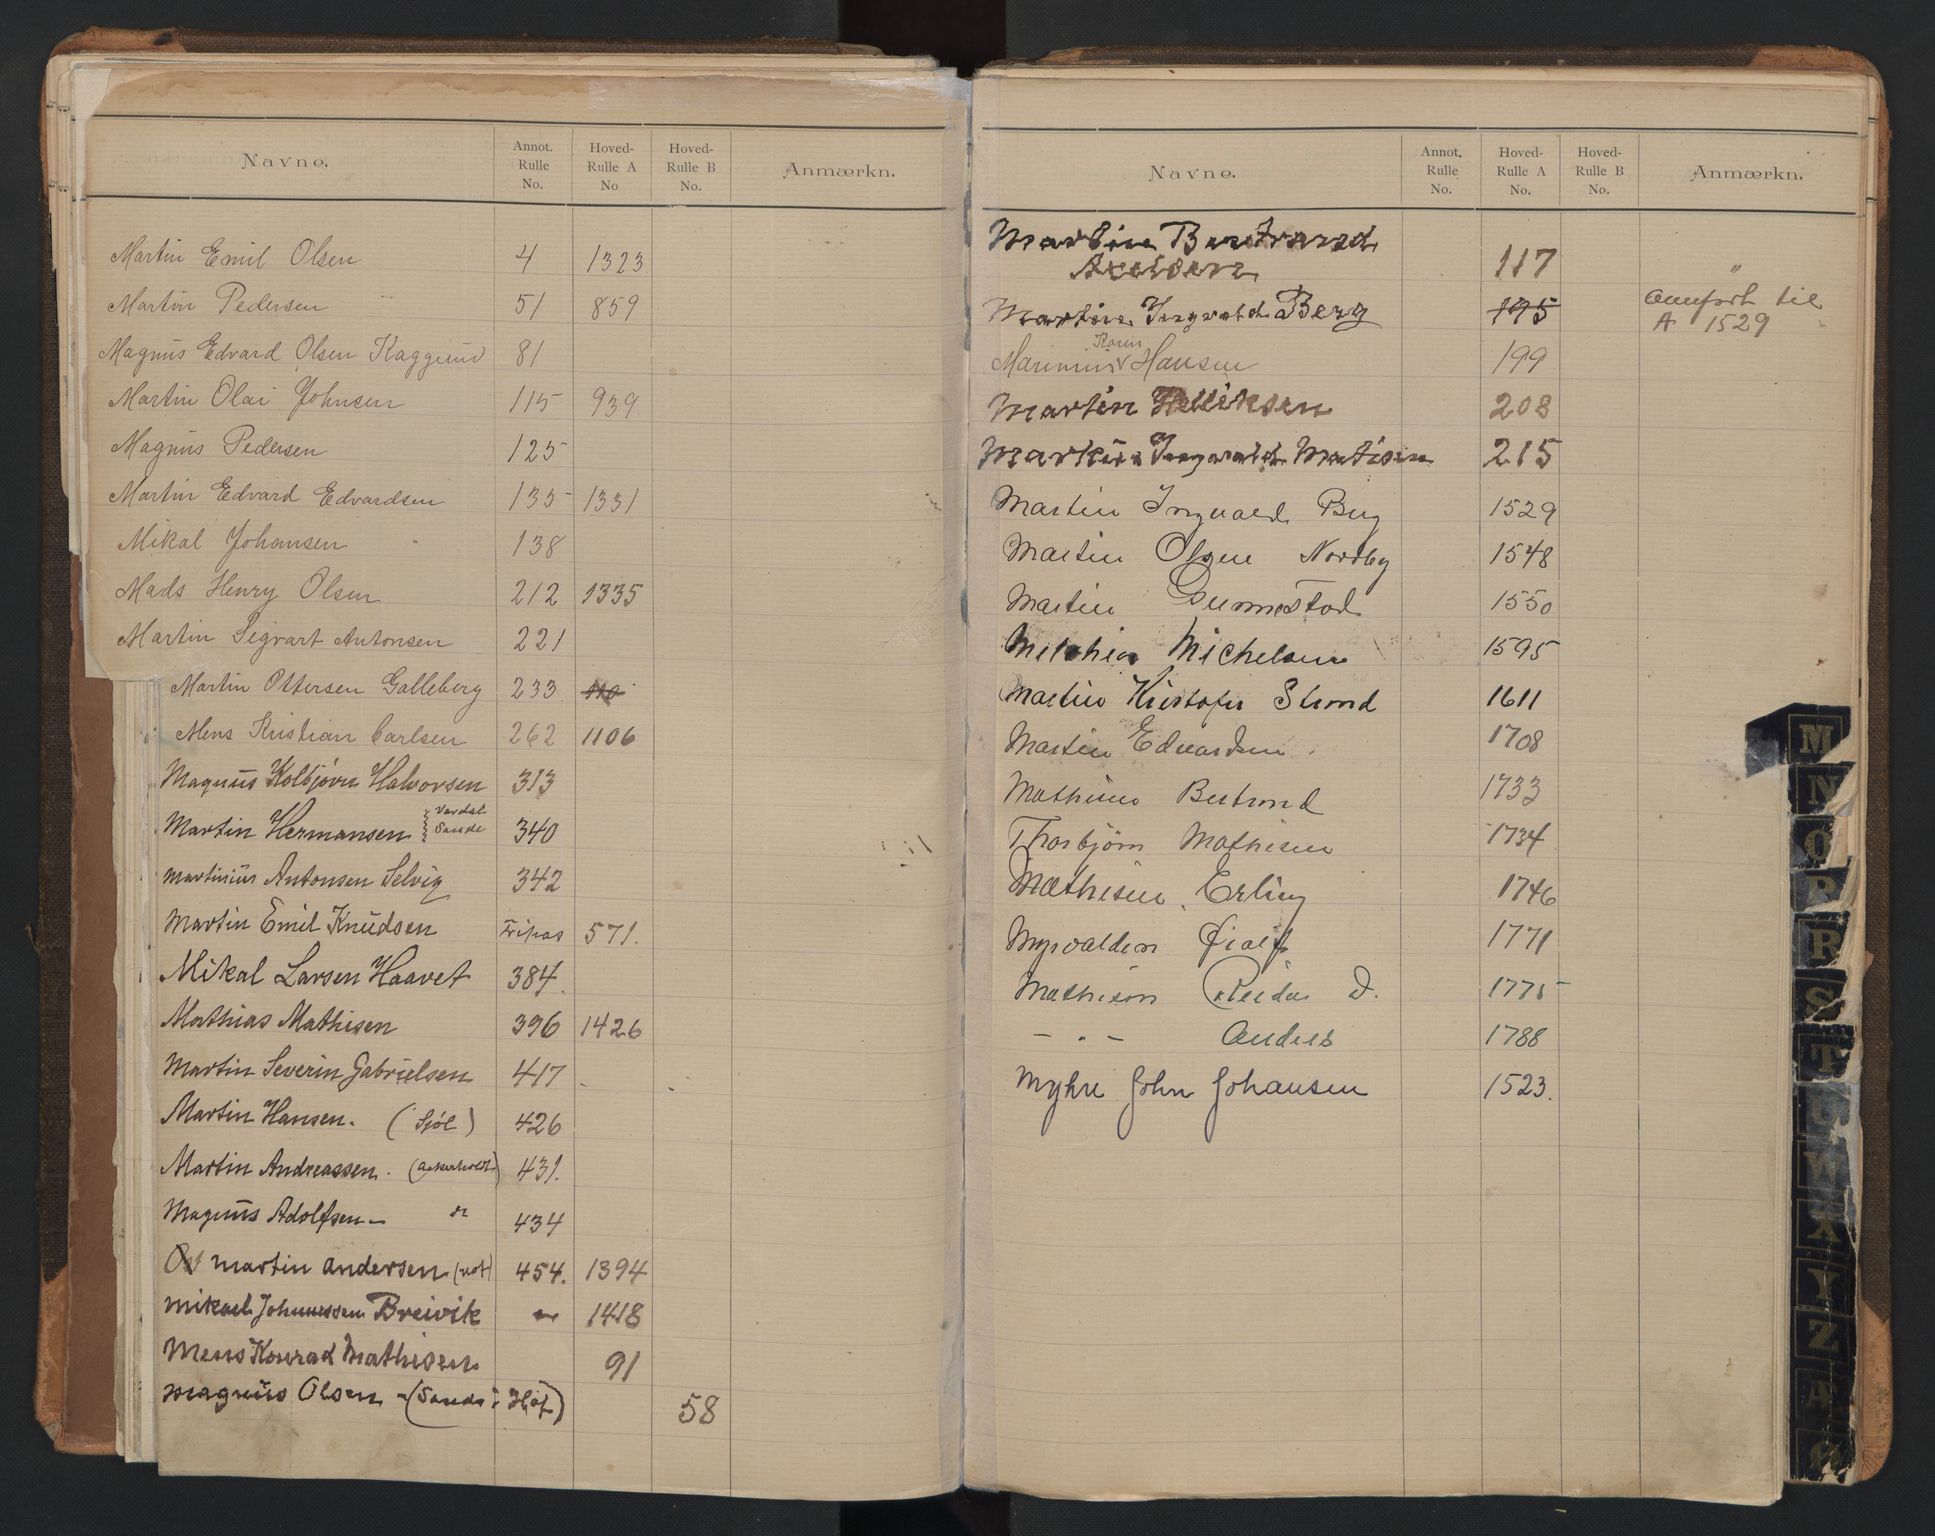 Navne. Annot. Rulle No. Hoved-Rulle A No Hoved-Rulle B No. Anmærkn.
Martin Emil Olsen 4 1323
Martin Pedersen 51 859
Magnus Edvard Olsen Kaggerud 81
Martin Olai Johnsen 115 939.
Magnus Pedersen 125
Martin Edvard Edvardsen 135 1331
Mikal Johansen 138
Mads Henry Olsen 212 1335
Martin Sigvart Antonsen 221
Martin Ottersen Galleberg 233.
Mens Kristian Carlsen 262 1106
Magnus Kolbjørn Halvorsen 313
Martin Hermansen Vardal Sande 340
Martinius Antonsen Selvig 342
Martin Emil Knudsen Fripas 571.
Mikal Larsen Haavet 384.
Mathias Mathisen 396 1426
Martin Severin Gabrielsen 417
Martin Hansen. (Sjøl) 426
Martin Andreassen. (Askerholdt) 431.
Magnus Adolfsen 434
martin andersen (not) 454. 1394
Mikael Johannessen Breivik 1418
Mens Konrad Mathisen 91
Magnus Olsen (Sande i Hof) 58
Navne. Annot. Rulle No. Hoved-Rulle A No. Hoved-Rulle B No. Anmærkn.
Martin Bertrand
Axelsen 117 "
Martin Ingvald Berg 195 Overført til
A 1529
Karin
Marinius Hansen 199
Martin Helliksen 208
Martin Ingvald Matisin 215
Martin Ingvald Berg 1529
Martin Olsen Nordby 1548
Martin Gunnestad 1550
Michelsen 1595
Martin Kristofer Strand 1611
Martin Edvardsen. 1708
Mathisen Bertrand 1733
Thorbjørn Mathisen 1734
Mathisen, Erling 1746
Myrvolden 1771
Mathisen Reidar D. 1775
- " - Anders 1788
Myhre John Johansen 1523.
M
N
O
P
R
S
T
U
W
X
Y
Z
Æ
Ø